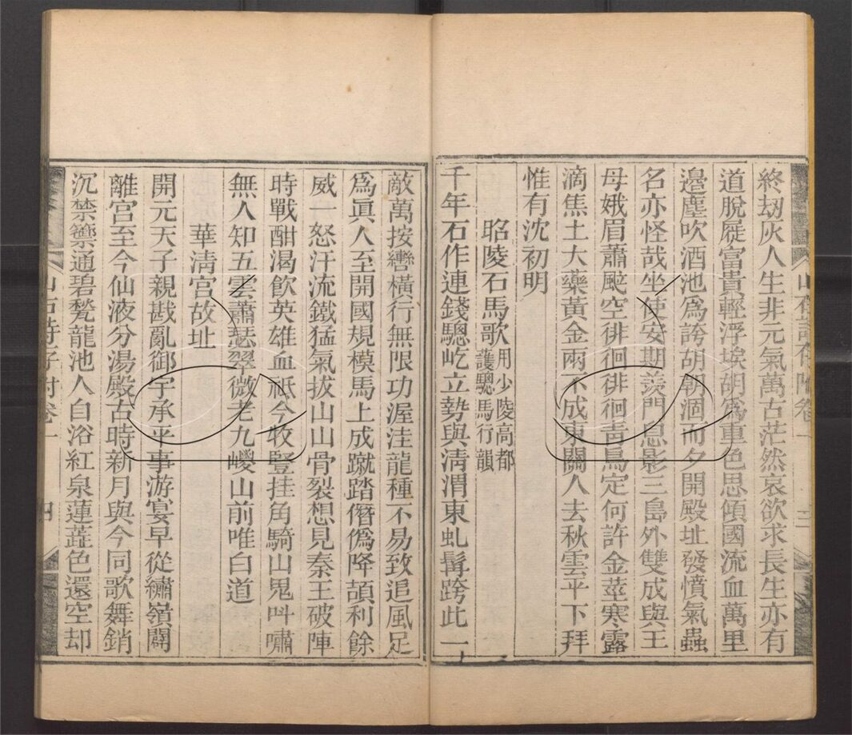 終刼灰人生非元氣萬古茫然哀欲求長生亦有
道脫屣富貴輕浮埃胡爲重色思傾國流血萬里
邊塵吹酒池爲誇胡朝涸而夕開殿址發憤氣蟲
名亦怪哉坐使安期羨門息影三島外雙成與王
母娥眉蕭颯空徘徊徘徊靑鳥定何許金莖寒露
滴焦土大藥黃金兩不成東關人去秋雲平下拜
惟有沈初明
昭陵石馬歌用少陵高都護驄馬行韻
千年石作連錢驄屹立勢與淸渭東虬髯跨此一
敵萬按轡橫行無限功渥洼龍種不易致追風足
爲眞人至開國規模馬上成蹴踏僭僞降頡利餘
威一怒汗流鐵猛氣拔山山骨裂想見秦王破陣
時戰酣渴飲英雄血祗今牧豎挂角騎山鬼叫嘯
無人知五雲蕭瑟翠微老九嵕山前唯白道
華淸宮故址
開元天子親戡亂御宇承平事游宴早從繡嶺闢
離宮至今仙液分湯殿古時新月與今同歌舞銷
沉禁籞通碧甃龍池人自浴紅泉蓮蕋色還空却
卷一
四
三